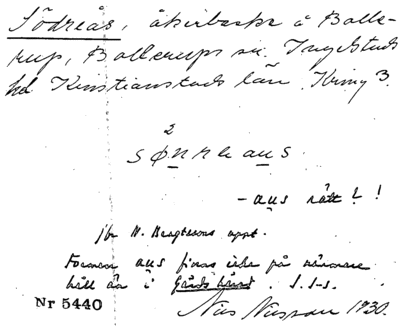 Södreås, åkerbacke å Bolle-
rup, Bollerups sn. Ingelstads
hd Kristianstads län.
2
- aus rätt? !
jfr N. Bengtssons uppt.
Formen aus finns icke på närmare
håll än i Gärds härad. I. I-s.
Nr 5440
Nils Nilsson 1930.